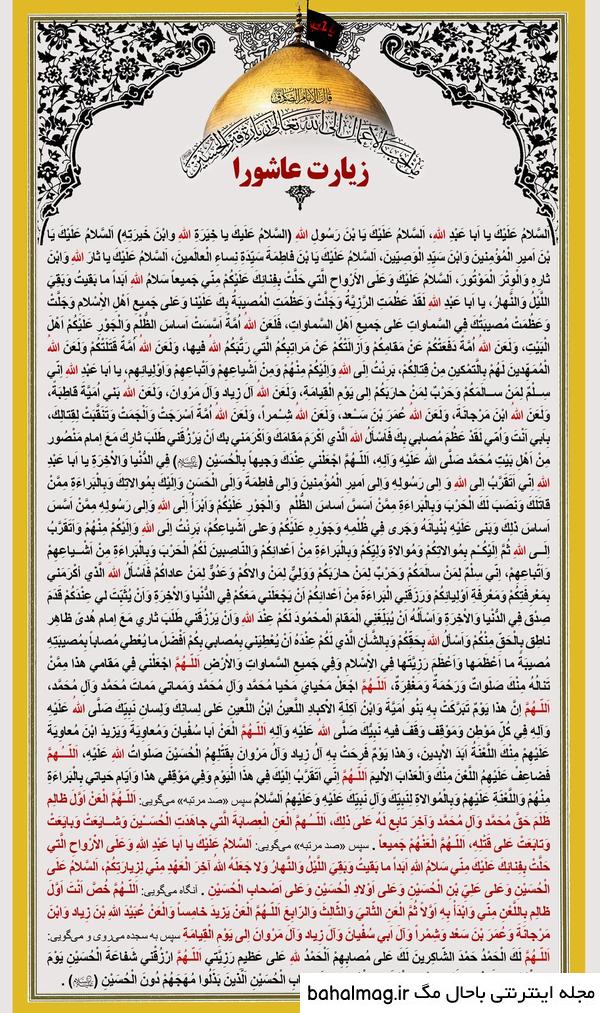 قال الإمام الصادق
من أحب الأعمال إلى الله تعالى زيارة قبر الحسين
زیارت عاشورا
اَلسَّلامُ عَلَيْكَ يا اَبا عَبْدِ اللهِ، اَلسَّلامُ عَلَيْكَ يَا بْنَ رَسُولِ اللهِ (السَّلامُ عَلَيكَ يا خِيَرَةِ اللهِ وابْنَ خَيرَتِهِ) اَلسَّلامُ عَلَيْكَ يَا
بْنَ اَميرِ الْمُؤْمِنينَ وَابْنَ سَيِّدِ الْوَصِيّينَ، اَلسَّلامُ عَلَيْكَ يَا بْنَ فاطِمَةَ سَيِّدَةِ نِساءِ الْعالَمينَ، اَلسَّلامُ عَلَيْكَ يا ثارَ اللهِ وَابْنَ
ثارِهِ وَالْوِتْرَ الْمَوْتُورَ، اَلسَّلامُ عَلَيْكَ وَعَلَى الاَْرْواحِ الَّتي حَلَّتْ بِفِنائِكَ عَلَيْكُمْ مِنّي جَميعاً سَلامُ اللهِ اَبَداً ما بَقيتُ وَبَقِيَ
اللَّيْلُ وَالنَّهارُ، يا اَبا عَبْدِ اللهِ لَقَدْ عَظُمَتِ الرَّزِيَّةُ وَجَلَّتْ وَعَظُمَتِ الْمُصيبَةُ بِكَ عَلَيْنا وَعَلى جَميعِ اَهْلِ الاِْسْلام وَجَلَّتْ
وَعَظُمَتْ مُصيبَتُكَ فِي السَّماواتِ عَلى جَميعِ اَهْلِ السَّماواتِ، فَلَعَنَ اللهُ اُمَّةً اَسَّسَتْ اَساسَ الظُّلْمِ وَالْجَوْرِ عَلَيْكُمْ اَهْلَ
الْبَيْتِ، وَلَعَنَ اللهُ اُمَّةً دَفَعَتْكُمْ عَنْ مَقامِكُمْ وَاَزالَتْكُمْ عَنْ مَراتِبِكُمُ الَّتي رَتَّبَكُمُ اللهُ فيها، وَلَعَنَ اللهُ اُمَّةً قَتَلَتْكُمْ وَلَعَنَ اللهُ
الْمُمَهِّدينَ لَهُمْ بِالتَّمْكينِ مِنْ قِتالِكُمْ، بَرِئْتُ اِلَى اللهِ وَاِلَيْكُمْ مِنْهُمْ وَمِنْ اَشْياعِهِمْ وَاَتْباعِهِمْ وَاَوْلِيائِهِم، يا اَبا عَبْدِ اللهِ اِنّي
سِلْمٌ لِمَنْ سالَمَكُمْ وَحَرْبٌ لِمَنْ حارَبَكُمْ اِلى يَوْمِ الْقِيامَةِ، وَلَعَنَ اللهُ آلَ زِياد وَآلَ مَرْوانَ، وَلَعَنَ اللهُ بَني اُمَيَّةَ قاطِبَةً،
وَلَعَنَ اللهُ ابْنَ مَرْجانَةَ، وَلَعَنَ اللهُ عُمَرَ بْنَ سَعْد، وَلَعَنَ اللهُ شِمْراً، وَلَعَنَ اللهُ اُمَّةً اَسْرَجَتْ وَاَلْجَمَتْ وَتَنَقَّبَتْ لِقِتالِكَ،
بِاَبي اَنْتَ وَاُمّي لَقَدْ عَظُمَ مُصابي بِكَ فَاَسْأَلُ اللهَ الَّذي اَكْرَمَ مَقامَكَ وَاَكْرَمَني بِكَ اَنْ يَرْزُقَني طَلَبَ ثارِكَ مَعَ اِمام مَنْصُور
مِنْ اَهْلِ بَيْتِ مُحَمَّد صَلَّى اللهُ عَلَيْهِ وَآلِهِ، اَللّـهُمَّ اجْعَلْني عِنْدَكَ وَجيهاً بِالْحُسَيْنِ فِي الدُّنْيا وَالاْخِرَةِ يا اَبا عَبْدِ
اللهِ اِنّي اَتَقَرَّبُ اِلى اللهِ وَ اِلى رَسُولِهِ وَاِلى اميرِ الْمُؤْمِنينَ وَاِلى فاطِمَةَ وَاِلَى الْحَسَنِ وَاِلَيْكَ بِمُوالاتِكَ وَبِالْبَراءَةِ مِمَّنْ
قاتَلَكَ وَنَصَبَ لَكَ الْحَرْبَ وَبِالْبَراءَةِ مِمَّنْ اَسَّسَ اَساسَ الظُّلْمِ وَالْجَوْرِ عَلَيْكُمْ وَاَبْرَأُ اِلَى اللهِ وَاِلى رَسُولِهِ مِمَّنْ اَسَّسَ
اَساسَ ذلِكَ وَبَنى عَلَيْهِ بُنْيانَهُ وَجَرى فِي ظُلْمِهِ وَجَوْرِهِ عَلَيْكُمْ وَعَلى اَشْياعِكُمْ، بَرِئْتُ اِلَى اللهِ وَاِلَيْكُمْ مِنْهُمْ وَاَتَقَرَّبُ
اِلَى اللهِ ثُمَّ اِلَيْكُمْ بِمُوالاتِكُمْ وَمُوالاةِ وَلِيِّكُمْ وَبِالْبَراءَةِ مِنْ اَعْدائِكُمْ وَالنّاصِبينَ لَكُمُ الْحَرْبَ وَبِالْبَراءَةِ مِنْ اَشْياعِهِمْ
وَاَتْباعِهِمْ، اِنّي سِلْمٌ لِمَنْ سالَمَكُمْ وَحَرْبٌ لِمَنْ حارَبَكُمْ وَوَلِيٌّ لِمَنْ والاكُمْ وَعَدُوٌّ لِمَنْ عاداكُمْ فَاَسْأَلُ اللهَ الَّذي اَكْرَمَني
بِمَعْرِفَتِكُمْ وَمَعْرِفَةِ اَوْلِيائِكُمْ وَرَزَقَنِي الْبَراءَةَ مِنْ اَعْدائِكُمْ اَنْ يَجْعَلَني مَعَكُمْ فِي الدُّنْيا وَالاْخِرَةِ وَاَنْ يُثَبِّتَ لي عِنْدَكُمْ قَدَمَ
صِدْق فِي الدُّنْيا وَالاْخِرَةِ وَاَسْأَلُهُ اَنْ يُبَلِّغَنِي الْمَقامَ الْمَحْمُودَ لَكُمْ عِنْدَ اللهِ وَاَنْ يَرْزُقَني طَلَبَ ثاري مَعَ اِمام هُدىً ظاهِر
ناطِق بِالْحَقِّ مِنْكُمْ وَاَسْألُ اللهَ بِحَقِّكُمْ وَبِالشَّأنِ الَّذي لَكُمْ عِنْدَهُ اَنْ يُعْطِيَني بِمُصابي بِكُمْ اَفْضَلَ ما يُعْطي مُصاباً بِمُصيبَتِهِ
مُصيبَةً ما اَعْظَمَها وَاَعْظَمَ رَزِيَّتَها فِي الاِْسْلامِ وَفِي جَميعِ السَّماواتِ وَالاْرْضِ اَللّهُمَّ اجْعَلْني في مَقامي هذا مِمَّنْ
تَنالُهُ مِنْكَ صَلَواتٌ وَرَحْمَةٌ وَمَغْفِرَةٌ، اَللّـهُمَّ اجْعَلْ مَحْيايَ مَحْيا مُحَمَّد وَآلِ مُحَمَّد وَمَماتي مَماتَ مُحَمَّد وَآلِ مُحَمَّد،
اَللّـهُمَّ اِنَّ هذا يَوْمٌ تَبَرَّكَتْ بِهِ بَنُو اُمَيَّةَ وَابْنُ آكِلَةِ الاَْكبادِ اللَّعينُ ابْنُ اللَّعينِ عَلى لِسانِكَ وَلِسانِ نَبِيِّكَ صَلَّى اللهُ عَلَيْهِ
وَآلِهِ فِي كُلِّ مَوْطِن وَمَوْقِف وَقَفَ فيهِ نَبِيُّكَ صَلَّى اللهُ عَلَيْهِ وَآلِهِ اَللّـهُمَّ الْعَنْ اَبا سُفْيانَ وَمُعاوِيَةَ وَيَزيدَ ابْنَ مُعاوِيَةَ
عَلَيْهِمْ مِنْكَ اللَّعْنَةُ اَبَدَ الاْبِدينَ، وَهذا يَوْمٌ فَرِحَتْ بِهِ آلُ زِياد وَآلُ مَرْوانَ بِقَتْلِهِمُ الْحُسَيْنَ صَلَواتُ اللهِ عَلَيْهِ، اَللّـهُمَّ
فَضاعِفْ عَلَيْهِمُ اللَّعْنَ مِنْكَ وَالْعَذابَ الاَْليمَ اَللّـهُمَّ اِنّي اَتَقَرَّبُ اِلَيْكَ فِي هذَا الْيَوْمِ وَفِي مَوْقِفي هذا وَاَيّامِ حَياتي بِالْبَراءَةِ
مِنْهُمْ وَاللَّعْنَةِ عَلَيْهِمْ وَبِالْمُوالاةِ لِنَبِيِّكَ وَآلِ نَبِيِّكَ عَلَيْهِ وَعَلَيْهِمُ اَلسَّلامُ سپس «صد مرتبه» می‌گویی: اَللّـهُمَّ الْعَنْ اَوَّلَ ظالِم
ظَلَمَ حَقَّ مُحَمَّد وَآلِ مُحَمَّد وَآخِرَ تابِع لَهُ عَلى ذلِكَ، اَللّـهُمَّ الْعَنِ الْعِصابَةَ الَّتي جاهَدَتِ الْحُسَيْنَ وَشايَعَتْ وَبايَعَتْ
وَتابَعَتْ عَلى قَتْلِهِ، اَللّـهُمَّ الْعَنْهُمْ جَميعاً. سپس «صد مرتبه» می‌گویی: اَلسَّلامُ عَلَيْكَ يا اَبا عَبْدِ اللهِ وَعَلَى الاَْرْواحِ الَّتي
حَلَّتْ بِفِنائِكَ عَلَيْكَ مِنّي سَلامُ اللهِ اَبَداً ما بَقيتُ وَبَقِيَ اللَّيْلُ وَالنَّهارُ وَلا جَعَلَهُ اللهُ آخِرَ الْعَهْدِ مِنّي لِزِيارَتِكُمْ، اَلسَّلامُ عَلَى
الْحُسَيْنِ وَعَلى عَلِيِّ بْنِ الْحُسَيْنِ وَعَلى اَوْلادِ الْحُسَيْنِ وَعَلى اَصْحابِ الْحُسَيْنِ . آنگاه می‌گویی: اَللّـهُمَّ خُصَّ اَنْتَ اَوَّلَ
ظالِم بِاللَّعْنِ مِنّي وَابْدَأْ بِهِ اَوَّلاً ثُمَّ الْعَنِ الثّانِيَ وَالثّالِثَ وَالرّابِعَ اَللّـهُمَّ الْعَنْ يَزيدَ خامِساً وَالْعَنْ عُبَيْدَ اللهِ بْنَ زِياد وَابْنَ
مَرْجانَةَ وَعُمَرَ بْنَ سَعْد وَشِمْراً وَآلَ اَبي سُفْيانَ وَآلَ زِياد وَآلَ مَرْوانَ اِلى يَوْمِ الْقِيامَةِ سپس به سجده می‌روی و می‌گویی:
اَللّـهُمَّ لَكَ الْحَمْدُ حَمْدَ الشّاكِرينَ لَكَ عَلى مُصابِهِمْ اَلْحَمْدُ للهِ عَلى عَظيمِ رَزِيَّتي اَللّـهُمَّ ارْزُقْني شَفاعَةَ الْحُسَيْنِ يَوْمَ
الْحُسَيْنِ الَّذينَ بَذَلُوا مُهَجَهُمْ دُونَ الْحُسَيْنِ .
مجله اینترنتی باحال مگ bahalmag.ir